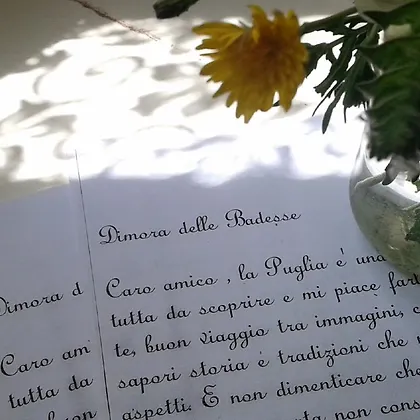 Dimora delle Badesse
Caro amico , la Puglia é una
tutta da scoprire e mi piace
te, buon viaggio tra immagini,
sapori storia é tradizioni che
aspetti. E non dimenticare che
non
Dimora d
Caro am
tutta da
buon